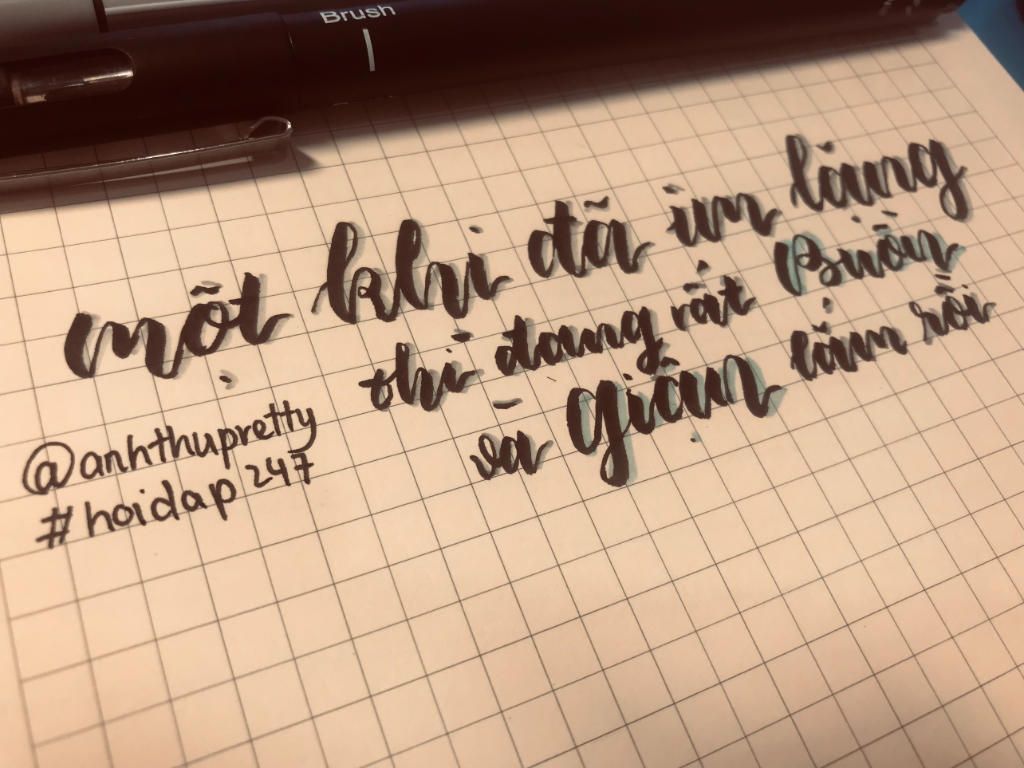 Brush
một khi đã im lặng
thì đang rất buồn
và giận lắm rồi
@anhthupretty
#hoidap247